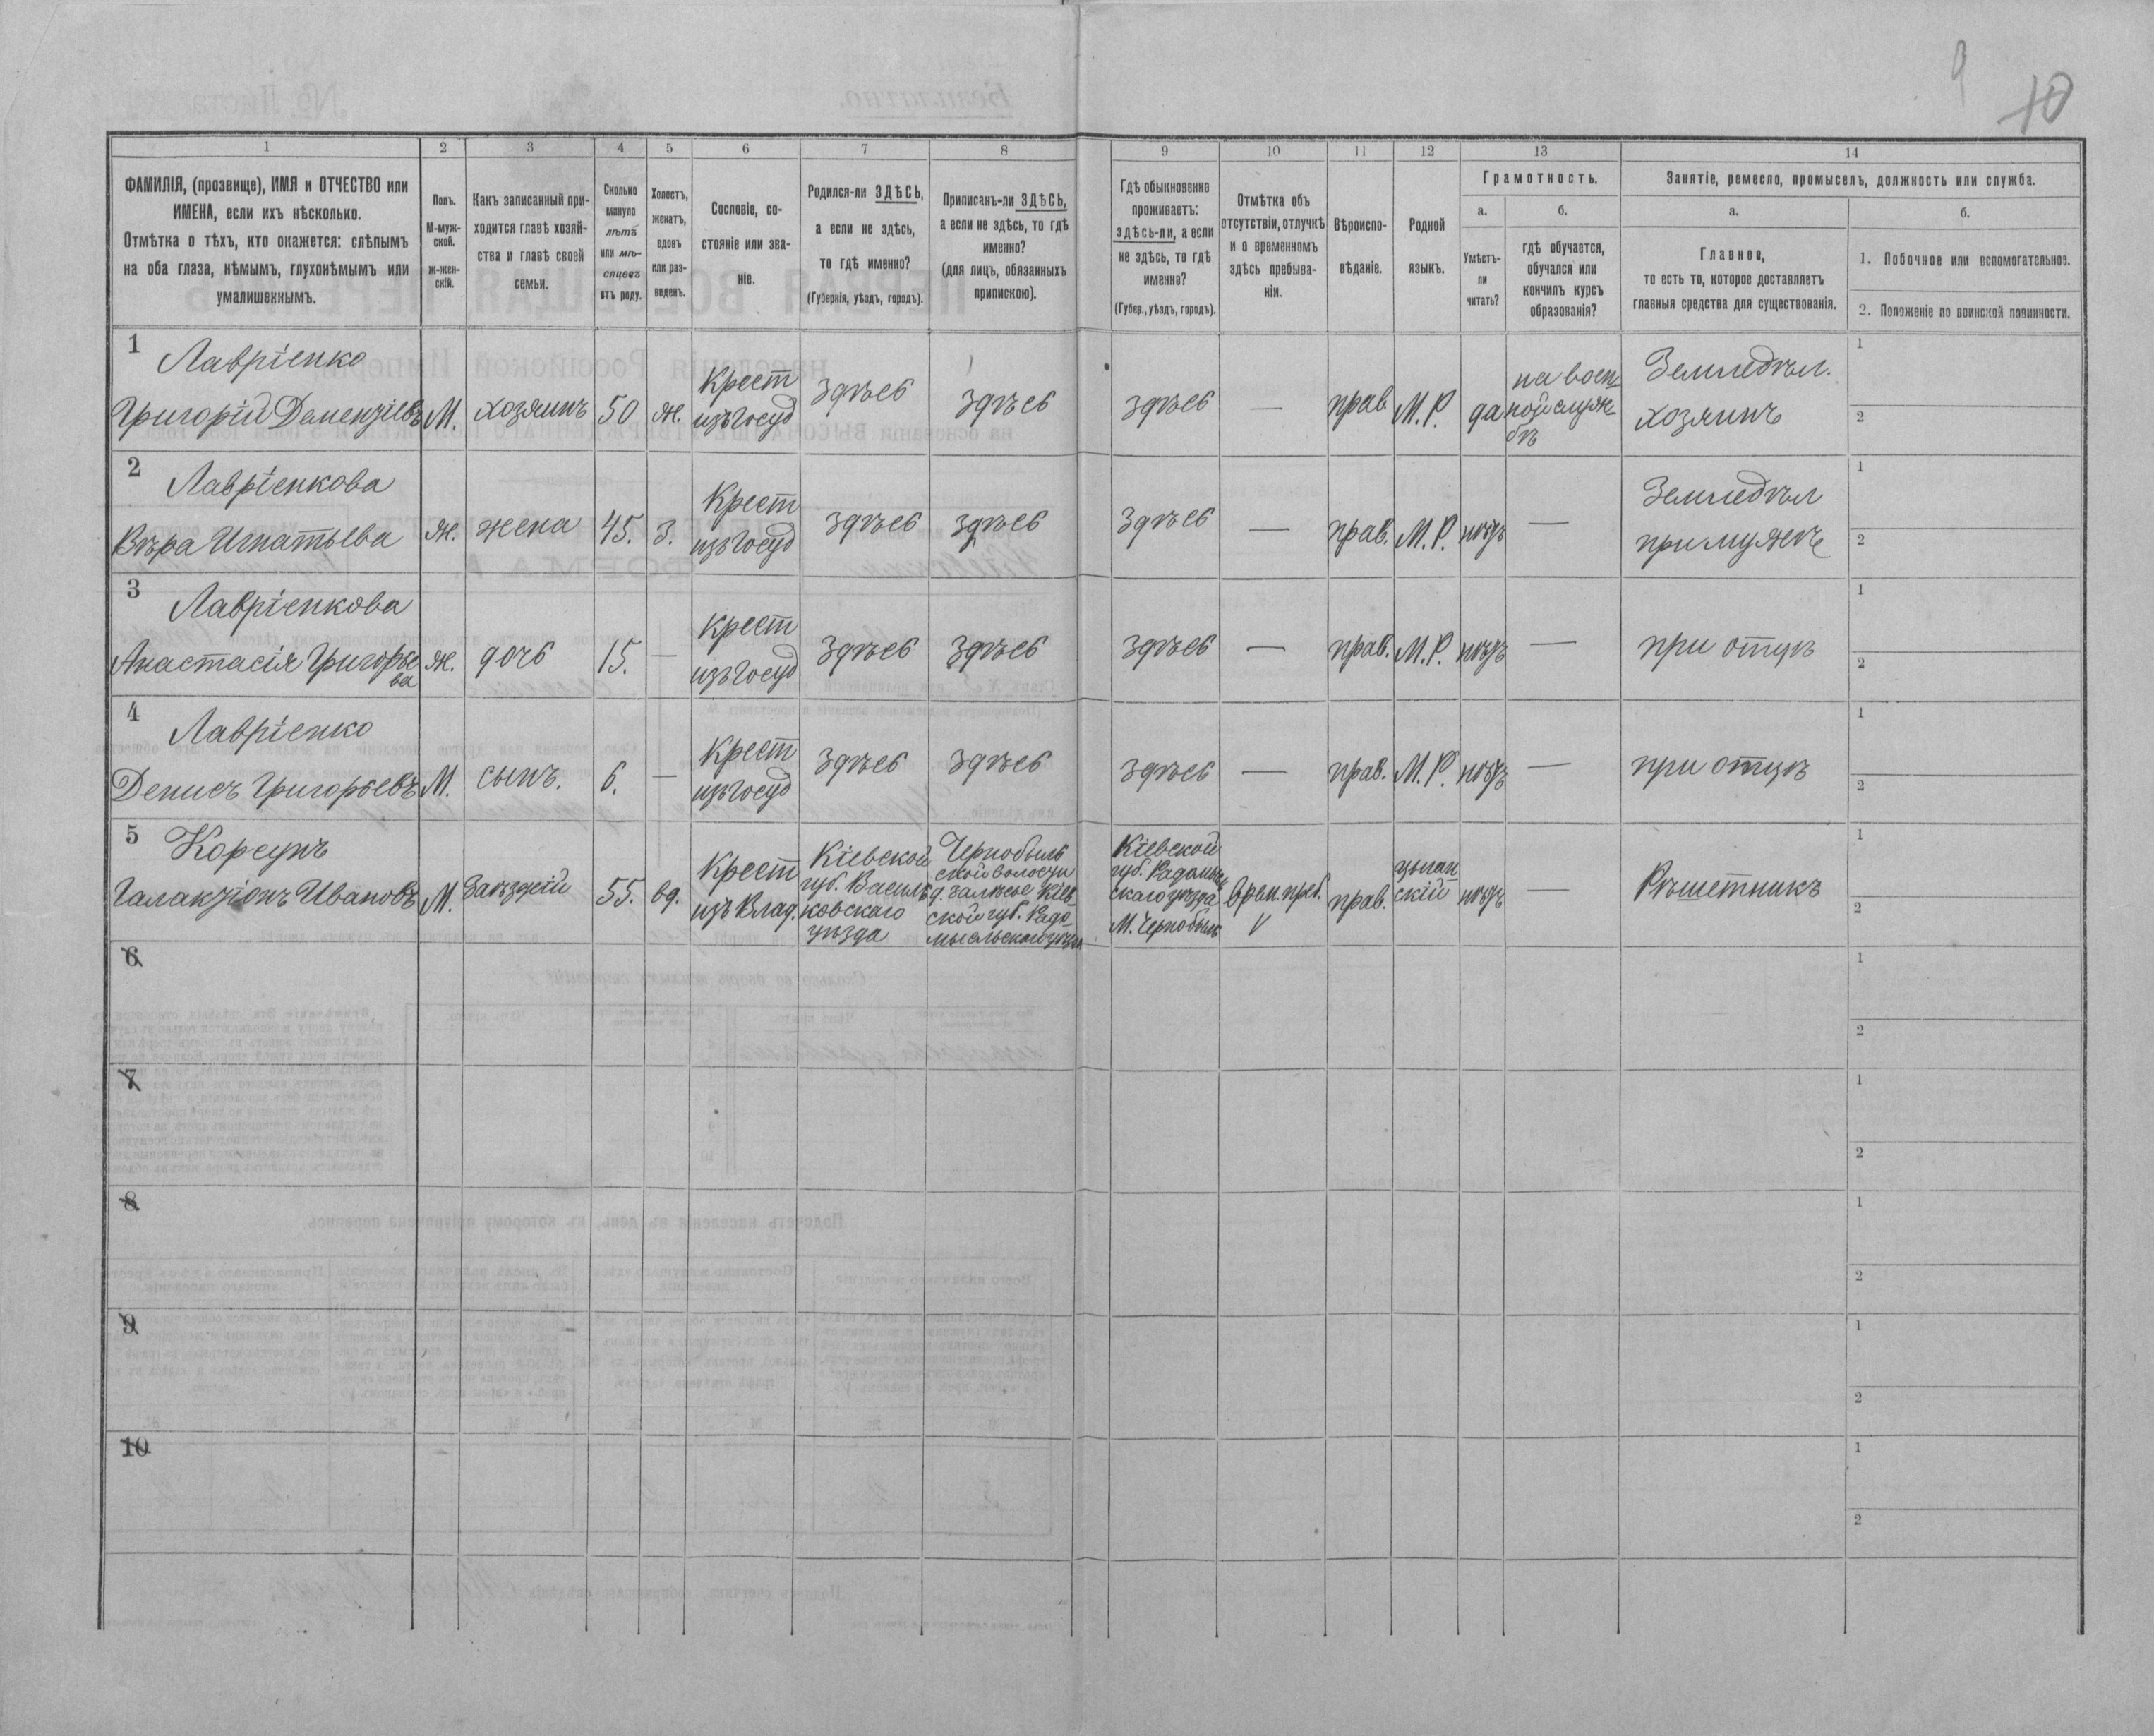 9
10
1
2
3
4
5
6
7
8
9
10
11
12
13
14
ФАМИЛІЯ, (прозвище), ИМЯ и ОТЧЕСТВО или
ИМЕНА, если ихъ нѣсколько.
Отмѣтка о тѣхъ, кто окажется: слѣпымъ
на оба глаза, нѣмымъ, глухонѣмымъ или
умалишеннымъ.
Полъ.
М-муж-
ской.
ж-жен-
скій.
Какъ записанный при-
ходится главѣ хозяй-
ства и главѣ своей
семьи.
Сколько
минуло
лѣтъ
или мѣ-
сяцевъ
отъ роду.
Холостъ,
женатъ,
вдовъ
или раз-
веденъ.
Сословіе, со-
стояніе или зва-
ніе.
Родился-ли ЗДѢСЬ,
а если не здѣсь,
то гдѣ именно?
(Губернія, уѣздъ, городъ).
Приписанъ-ли ЗДѢСЬ,
а если не здѣсь, то гдѣ
именно?
(для лицъ, обязанныхъ
припискою).
Гдѣ обыкновенно
проживаетъ:
здѣсь-ли, а если
не здѣсь, то гдѣ
именно?
(Губер., уѣздъ, городъ).
Отмѣтка объ
отсутствіи, отлучкѣ
и о временномъ
здѣсь пребыва-
ніи.
Вѣроиспо-
вѣданіе.
Родной
языкъ.
Грамотность.
а.
Умѣетъ-
ли
читать?
б.
гдѣ обучается,
обучался или
кончилъ курсъ
образованія?
Занятіе, ремесло, промыселъ, должность или служба.
а.
Главное,
то есть то, которое доставляетъ
главныя средства для существованія.
б.
1. Побочное или вспомогательное.
2. Положеніе по воинской повинности.
1
Лавріенко
Григорій Дамензіевъ
М.
хозяинъ
50
ж.
Крест
изъ госуд
здѣсь
здѣсь
здѣсь
—
прав.
М.Р.
да
на воен-
ной служ-
бѣ
Земледѣл.
хозяинъ
1
2
2
Лавріенкова
Вѣра Игнатьева
ж.
жена
45.
З.
Крест
изъ госуд
здѣсь
здѣсь
здѣсь
—
прав.
М.Р.
нѣтъ
—
Земледѣл
при мужѣ
1
2
3
Лавріенкова
Анастасія Григорье
ва
ж.
дочь
15.
—
Крест
изъ госуд
здѣсь
здѣсь
здѣсь
—
прав.
М.Р.
нѣтъ
—
при отцѣ
1
2
4
Лавріенко
Денисъ Григорьевъ
М.
сынъ.
6.
—
Крест
изъ госуд
здѣсь
здѣсь
здѣсь
—
прав.
М.Р.
нѣтъ
—
при отцѣ
1
2
5
Корсунъ
Галакзіонъ Ивановъ
М.
Заѣзжій
55.
вд.
Крест
изъ Влад.
Кіевской
губ. Василь
ковскаго
уѣзда
Чернобыль
ской волости
д. Залѣсье Кіев
ской губ. Радо-
мысльскаго уѣзда
Кіевской
губ. Радомысль
скаго уѣзда
М. Чернобыль
врем. преб.
V
прав.
цыган
скій
нѣтъ
—
Рѣшетникъ
1
2
6
1
2
7
1
2
8
1
2
9
1
2
10
1
2